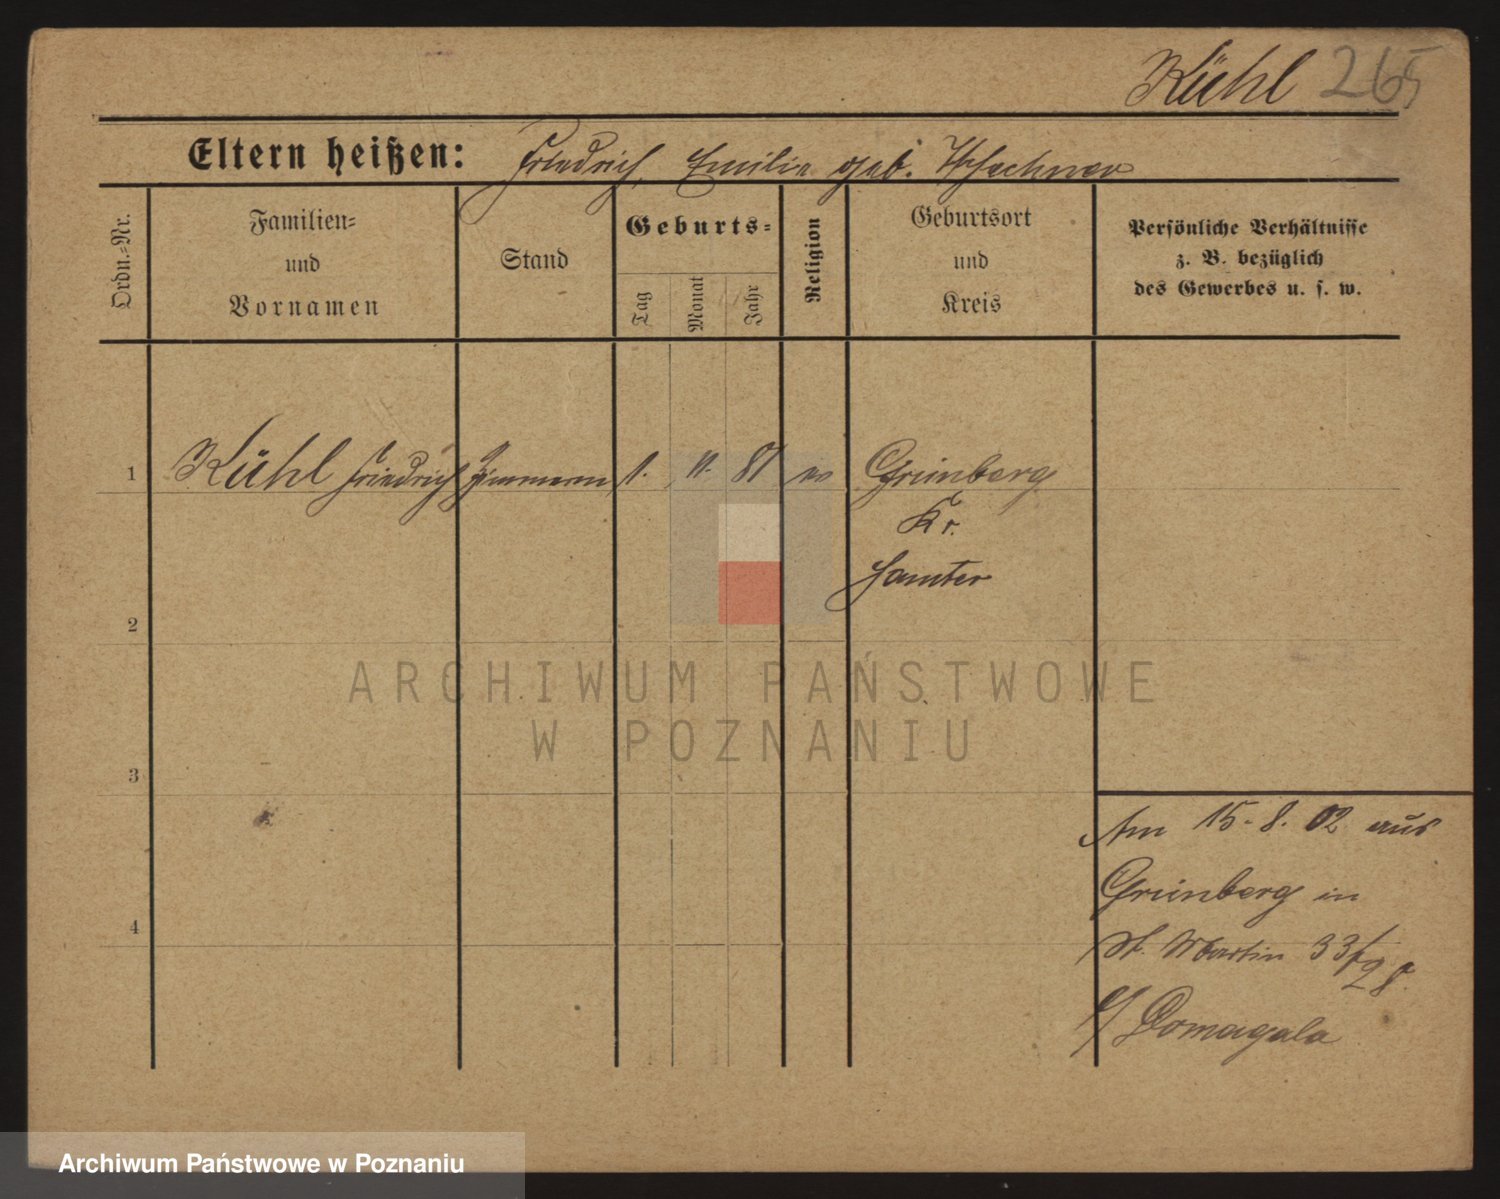 Kühl 265
Eltern heißen: Friedrich, Emilie geb.
Ordn.-Nr.
Familien=
und
Vornamen
Stand
Geburts=
Tag
Monat
Jahr
Religion
Geburtsort
und
Kreis
Persönliche Verhältnisse
z. B. bezüglich
des Gewerbes u. s. w.
1 Kühl Friedrich Zimmerm 1. 11. 81 ev Grünberg
Kr.
Samter
2
ARCHIWUM PAŃSTWOWE
W POZNANIU
3
Am 15. 8. 02 aus
Grünberg in
4
St. Martin 33/28.
b/ Domagala
Archiwum Państwowe w Poznaniu